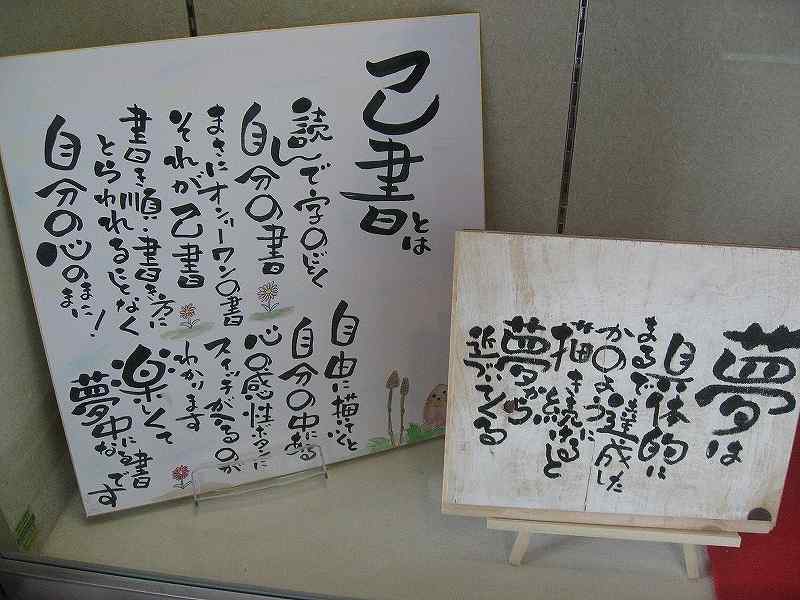 己書とは
読んで字のごとく
自分の書
まさにオンリーワンの書
それが己書
書き順・書き方に
とらわれることなく
自分の心のままに!
自由に描いてくと
自分の中にある
心の感性ボタンに
スイッチが入るのが
わかります
楽しくて
夢中になる書
です
夢は
具体的に
まるで達成した
かのように
描き続けると
夢から
近づいてくる